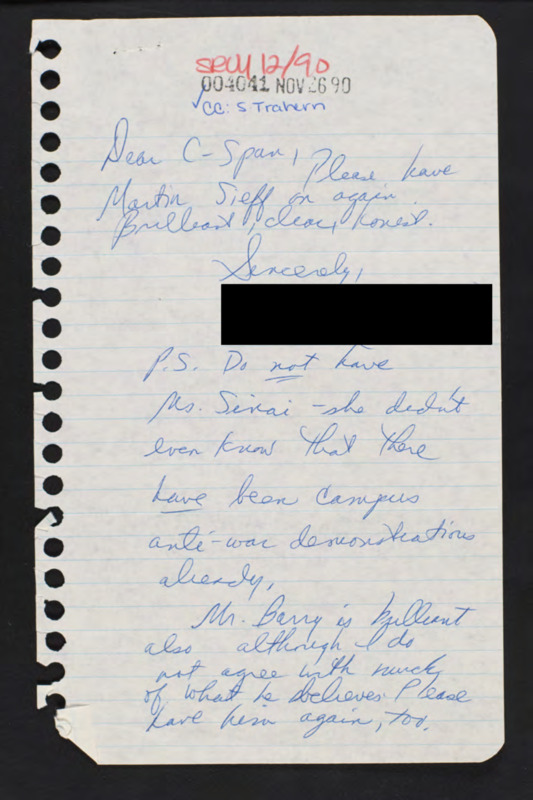 SRCU 12/90
004041 NOV 26 90
✓ CC: S Trahern
Dear C-Span, Please have
Martin Sieff on again.
Brilliant, clear, honest.
Sincerely,
P.S. Do not have
Ms. Sinai - she didn't
even know that there
have been campus
anti-war demonstrations
already,
Mr. Barry is brilliant
also although I do
not agree with much
of what he believes. Please
have him again, too.